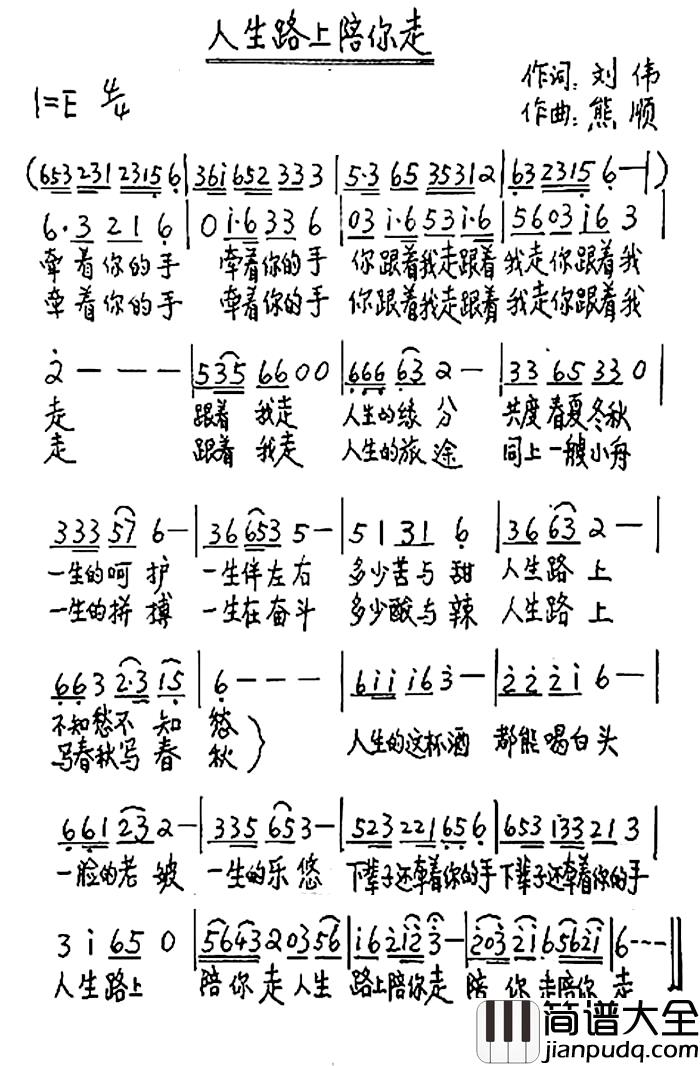 人生路上陪你走
作词：刘伟
1=E 4/4
作曲：熊顺
(653 231 2315 6 | 36i 652 333 | 5·3 65 35312 | 63 2315 6 — | )
6·3 21 6 | 0 i·6 33 6 | 03 i·6 53 i·6 | 56 03 i6 3 |
牵着你的手 牵着你的手 你跟着我走跟着我走你跟着我
牵着你的手 牵着你的手 你跟着我走跟着我走你跟着我
2 — — — | 535 66 0 0 | 666 63 2 — | 33 65 33 0 |
走 跟着我走 人生的缘分 共度春夏冬秋
走 跟着我走 人生的旅途 同上一艘小舟
333 57 6 — | 36 653 5 — | 51 31 6 | 36 63 2 — |
一生的呵护 一生伴左右 多少苦与甜 人生路上
一生的拼搏 一生在奋斗 多少酸与辣 人生路上
663 2·3 15 | 6 — — — | 6iii i6 3 — | 222i 6 — |
不知愁不知愁 人生的这杯酒 都能喝白头
写春秋写春秋
661 23 2 — | 335 65 3 — | 523 221 65 6 | 653 133 21 3 |
一脸的老皱 一生的乐悠 下辈子还牵着你的手 下辈子还牵着你的手
3 i 65 0 | 5643 2 03 56 | i6 212 3 — | 203 21 65621 | 6 — — — ||
人生路上 陪你走人生 路上陪你走 陪你走陪你走
简谱大全
jianpudq.com